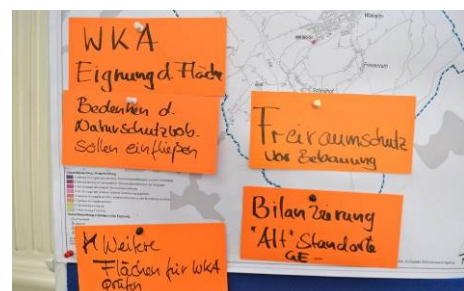 WKA
Eignung d. Fläche
Bedenken d.
Naturschutzbeh.
sollen einfließen
Freiraumschutz
vor Bebauung
Bilanzierung
"Alt" Standorte
GE
Weitere
Flächen für WKA
prüfen